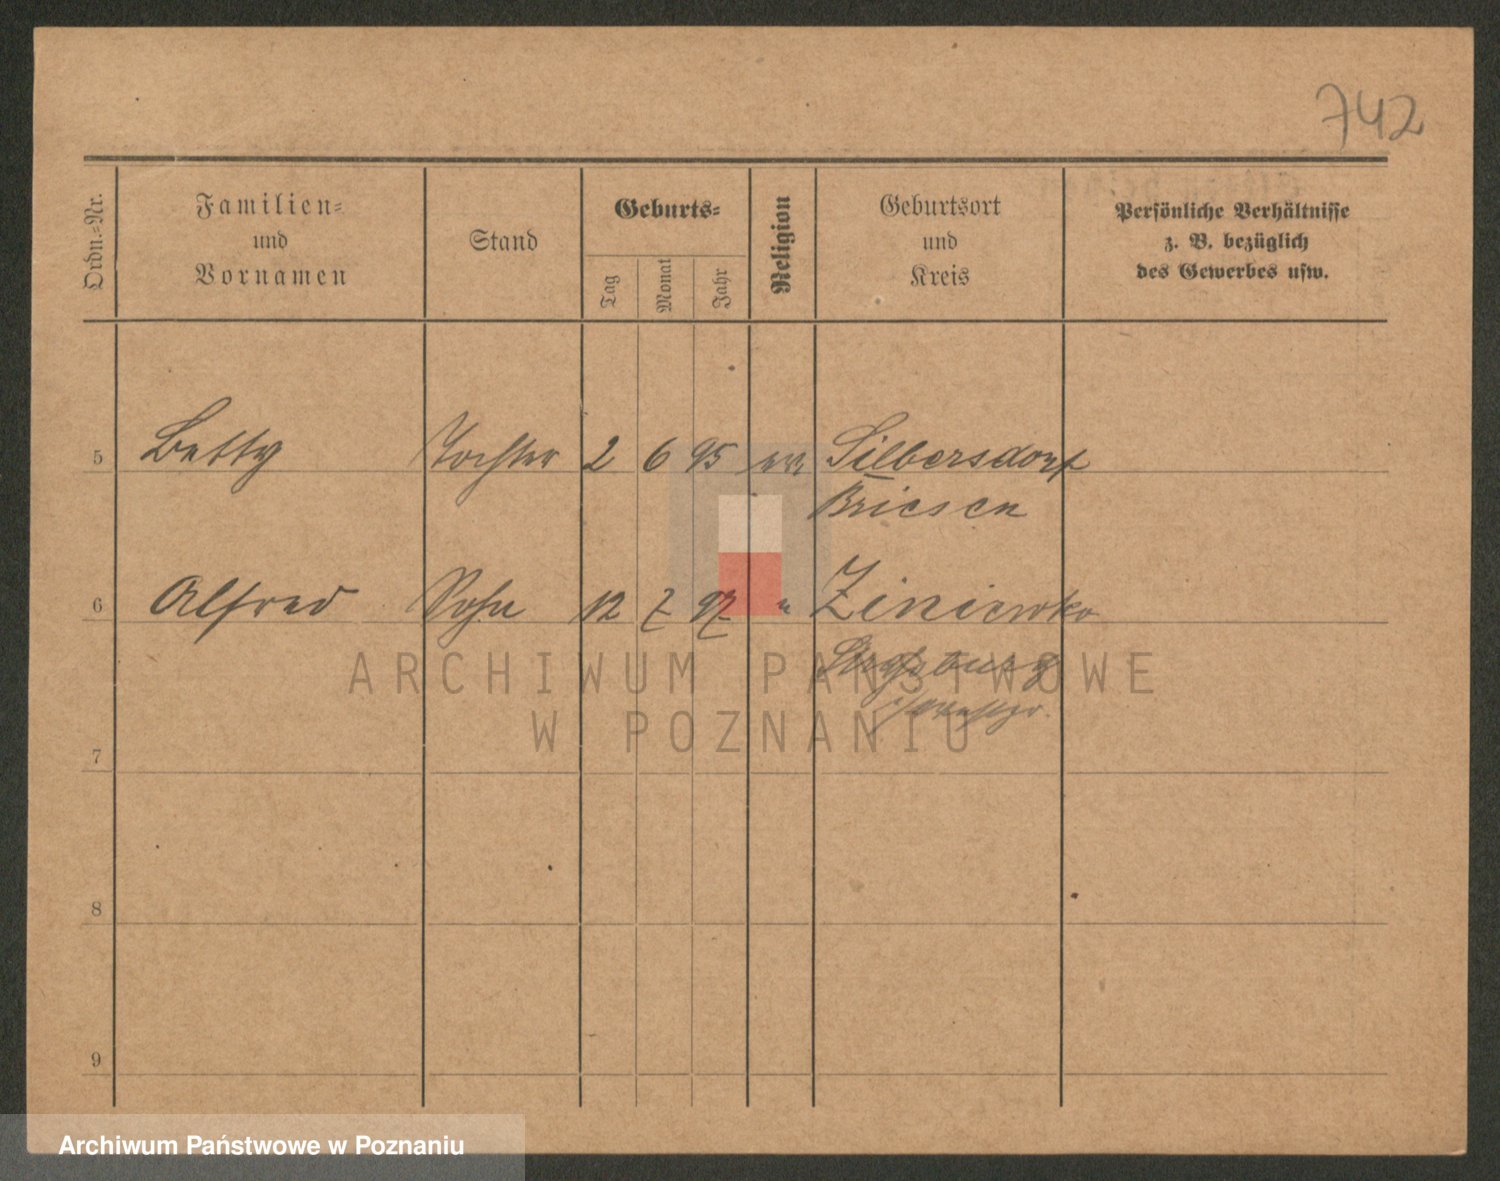 742
Ordn.-Nr.
Familien-
und
Vornamen
Stand
Geburts-
Tag
Monat
Jahr
Religion
Geburtsort
und
Kreis
Persönliche Verhältnisse
z. B. bezüglich
des Gewerbes usw.
5 Betty Tochter 2 6 95 Silbersdorf
Briesen
6 Alfred Sohn 12 7 97 " Ziniewko
Straßburg
i/Westpr.
7
8
9
ARCHIWUM PAŃSTWOWE
W POZNANIU
Archiwum Państwowe w Poznaniu